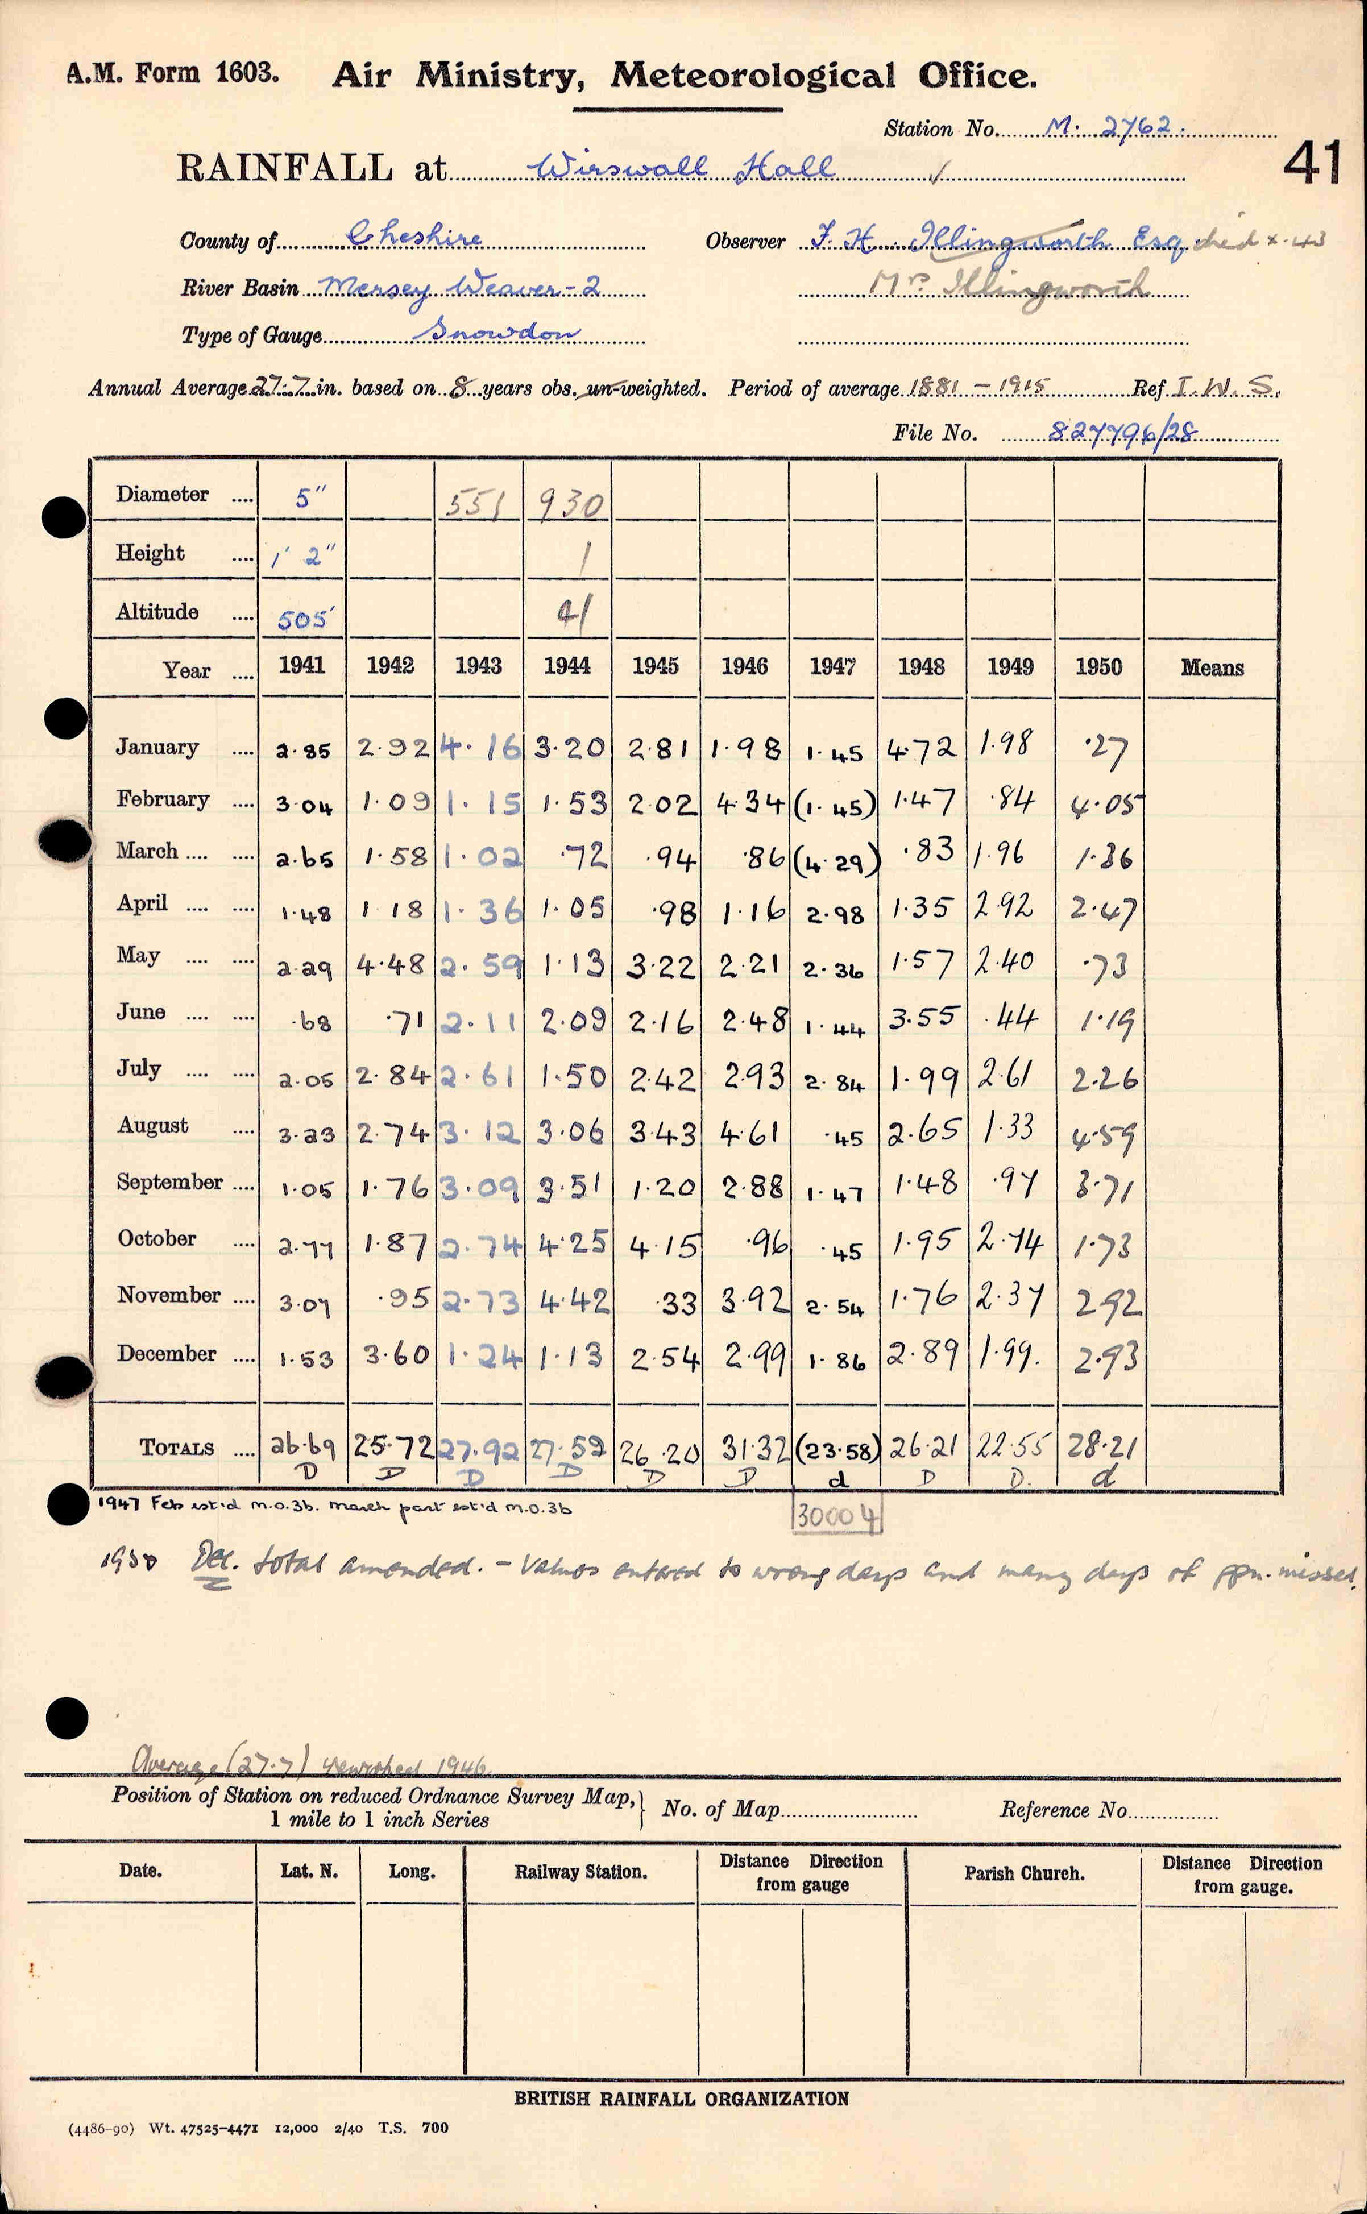 A.M. Form 1603. Air Ministry, Meteorological Office.
Station No. M. 2762.
41
RAINFALL at Wirswall Hall ✓
County of Cheshire Observer F. H. Illingworth Esq. died x.43
River Basin Mersey Weaver-2 Mrs Illingworth
Type of Gauge Snowdon
Annual Average 27.7 in. based on 8 years obs. un-weighted. Period of average 1881 - 1915 Ref I. W. S.
File No. 827796/28
Diameter .... 5" 551 930
Height .... 1' 2" 1
Altitude .... 505' 41
Year .... 1941 1942 1943 1944 1945 1946 1947 1948 1949 1950 Means
January .... 2.85 2.92 4.16 3.20 2.81 1.98 1.45 4.72 1.98 .27
February .... 3.04 1.09 1.15 1.53 2.02 4.34 (1.45) 1.47 .84 4.05
March .... .... 2.65 1.58 1.02 .72 .94 .86 (4.29) .83 1.96 1.36
April .... .... 1.48 1.18 1.36 1.05 .98 1.16 2.98 1.35 2.92 2.47
May .... .... 2.29 4.48 2.59 1.13 3.22 2.21 2.36 1.57 2.40 .73
June .... .... .68 .71 2.11 2.09 2.16 2.48 1.44 3.55 .44 1.19
July .... .... 2.05 2.84 2.61 1.50 2.42 2.93 2.84 1.99 2.61 2.26
August .... 3.23 2.74 3.12 3.06 3.43 4.61 .45 2.65 1.33 4.59
September .... 1.05 1.76 3.09 3.51 1.20 2.88 1.47 1.48 .97 3.71
October .... 2.77 1.87 2.74 4.25 4.15 .96 .45 1.95 2.74 1.73
November .... 3.07 .95 2.73 4.42 .33 3.92 2.54 1.76 2.37 2.92
December .... 1.53 3.60 1.24 1.13 2.54 2.99 1.86 2.89 1.99. 2.93
TOTALS .... 26.69 25.72 27.92 27.59 26.20 31.32 (23.58) 26.21 22.55 28.21
D D D D D D d D D. d
1947 Feb est'd m.o.3b. March part est'd m.o.3b 30004
1950 Dec. total amended. - Values entered to wrong days and many days of ppn. missed.
Average (27.7) reworked 1946
Position of Station on reduced Ordnance Survey Map, 1 mile to 1 inch Series } No. of Map Reference No.
Date. Lat. N. Long. Railway Station. Distance Direction from gauge Parish Church. Distance Direction from gauge.
BRITISH RAINFALL ORGANIZATION
(4486-90) Wt. 47525-4471 12,000 2/40 T.S. 700